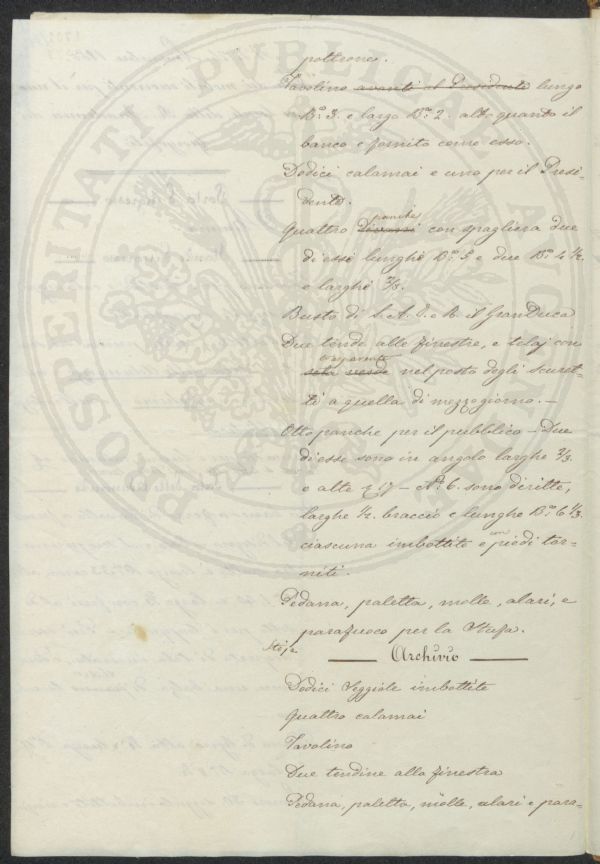 poltrone.
Tavolino avanti al Presidente lungo
Ba. 3. e largo Ba. 2. alto quanto il
banco e fornito come esso.
Dodici calamai e uno per il Presi-
dente.
panche
Quattro con spagliera due
di essi lunghe Ba. 5 e due Ba. 4 ½.
e larghe ⅔.
Busto di S. A. I. e R. il GranDuca
Due tende alle finestre, e telaj con
trasparente
seta verde nel posto degli scuret-
ti a quella di mezzogiorno. —
Otto panche per il pubblico — Due
di esse sono in angolo larghe ⅔.
e alte — No. 6. sono diritte,
larghe ½. braccio e lunghe Ba. 6 ⅓.
con
ciascuna imbottite e piedi tor-
niti.
Pedana, paletta, molle, alari, e
parafuoco per la Stufa.
Stoje
Archivio
Dodici Seggiole imbottite
Quattro calamai
Tavolino
Due tendine alla finestra
Pedana, paletta, molle, alari e para-
PROSPERITATI PUBLICAE AUGENDAE